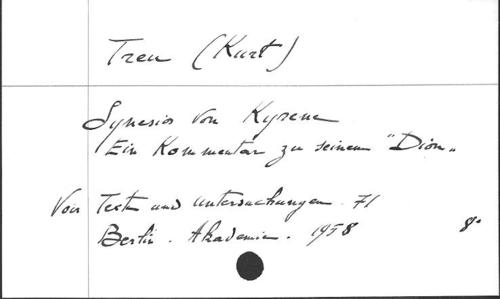 Treu (Kurt)
Synesios von Kyrene
Ein Kommentar zu seinem "Dion"
Voir Texte und Untersuchungen. 71
Berlin. Akademie. 1958 8°